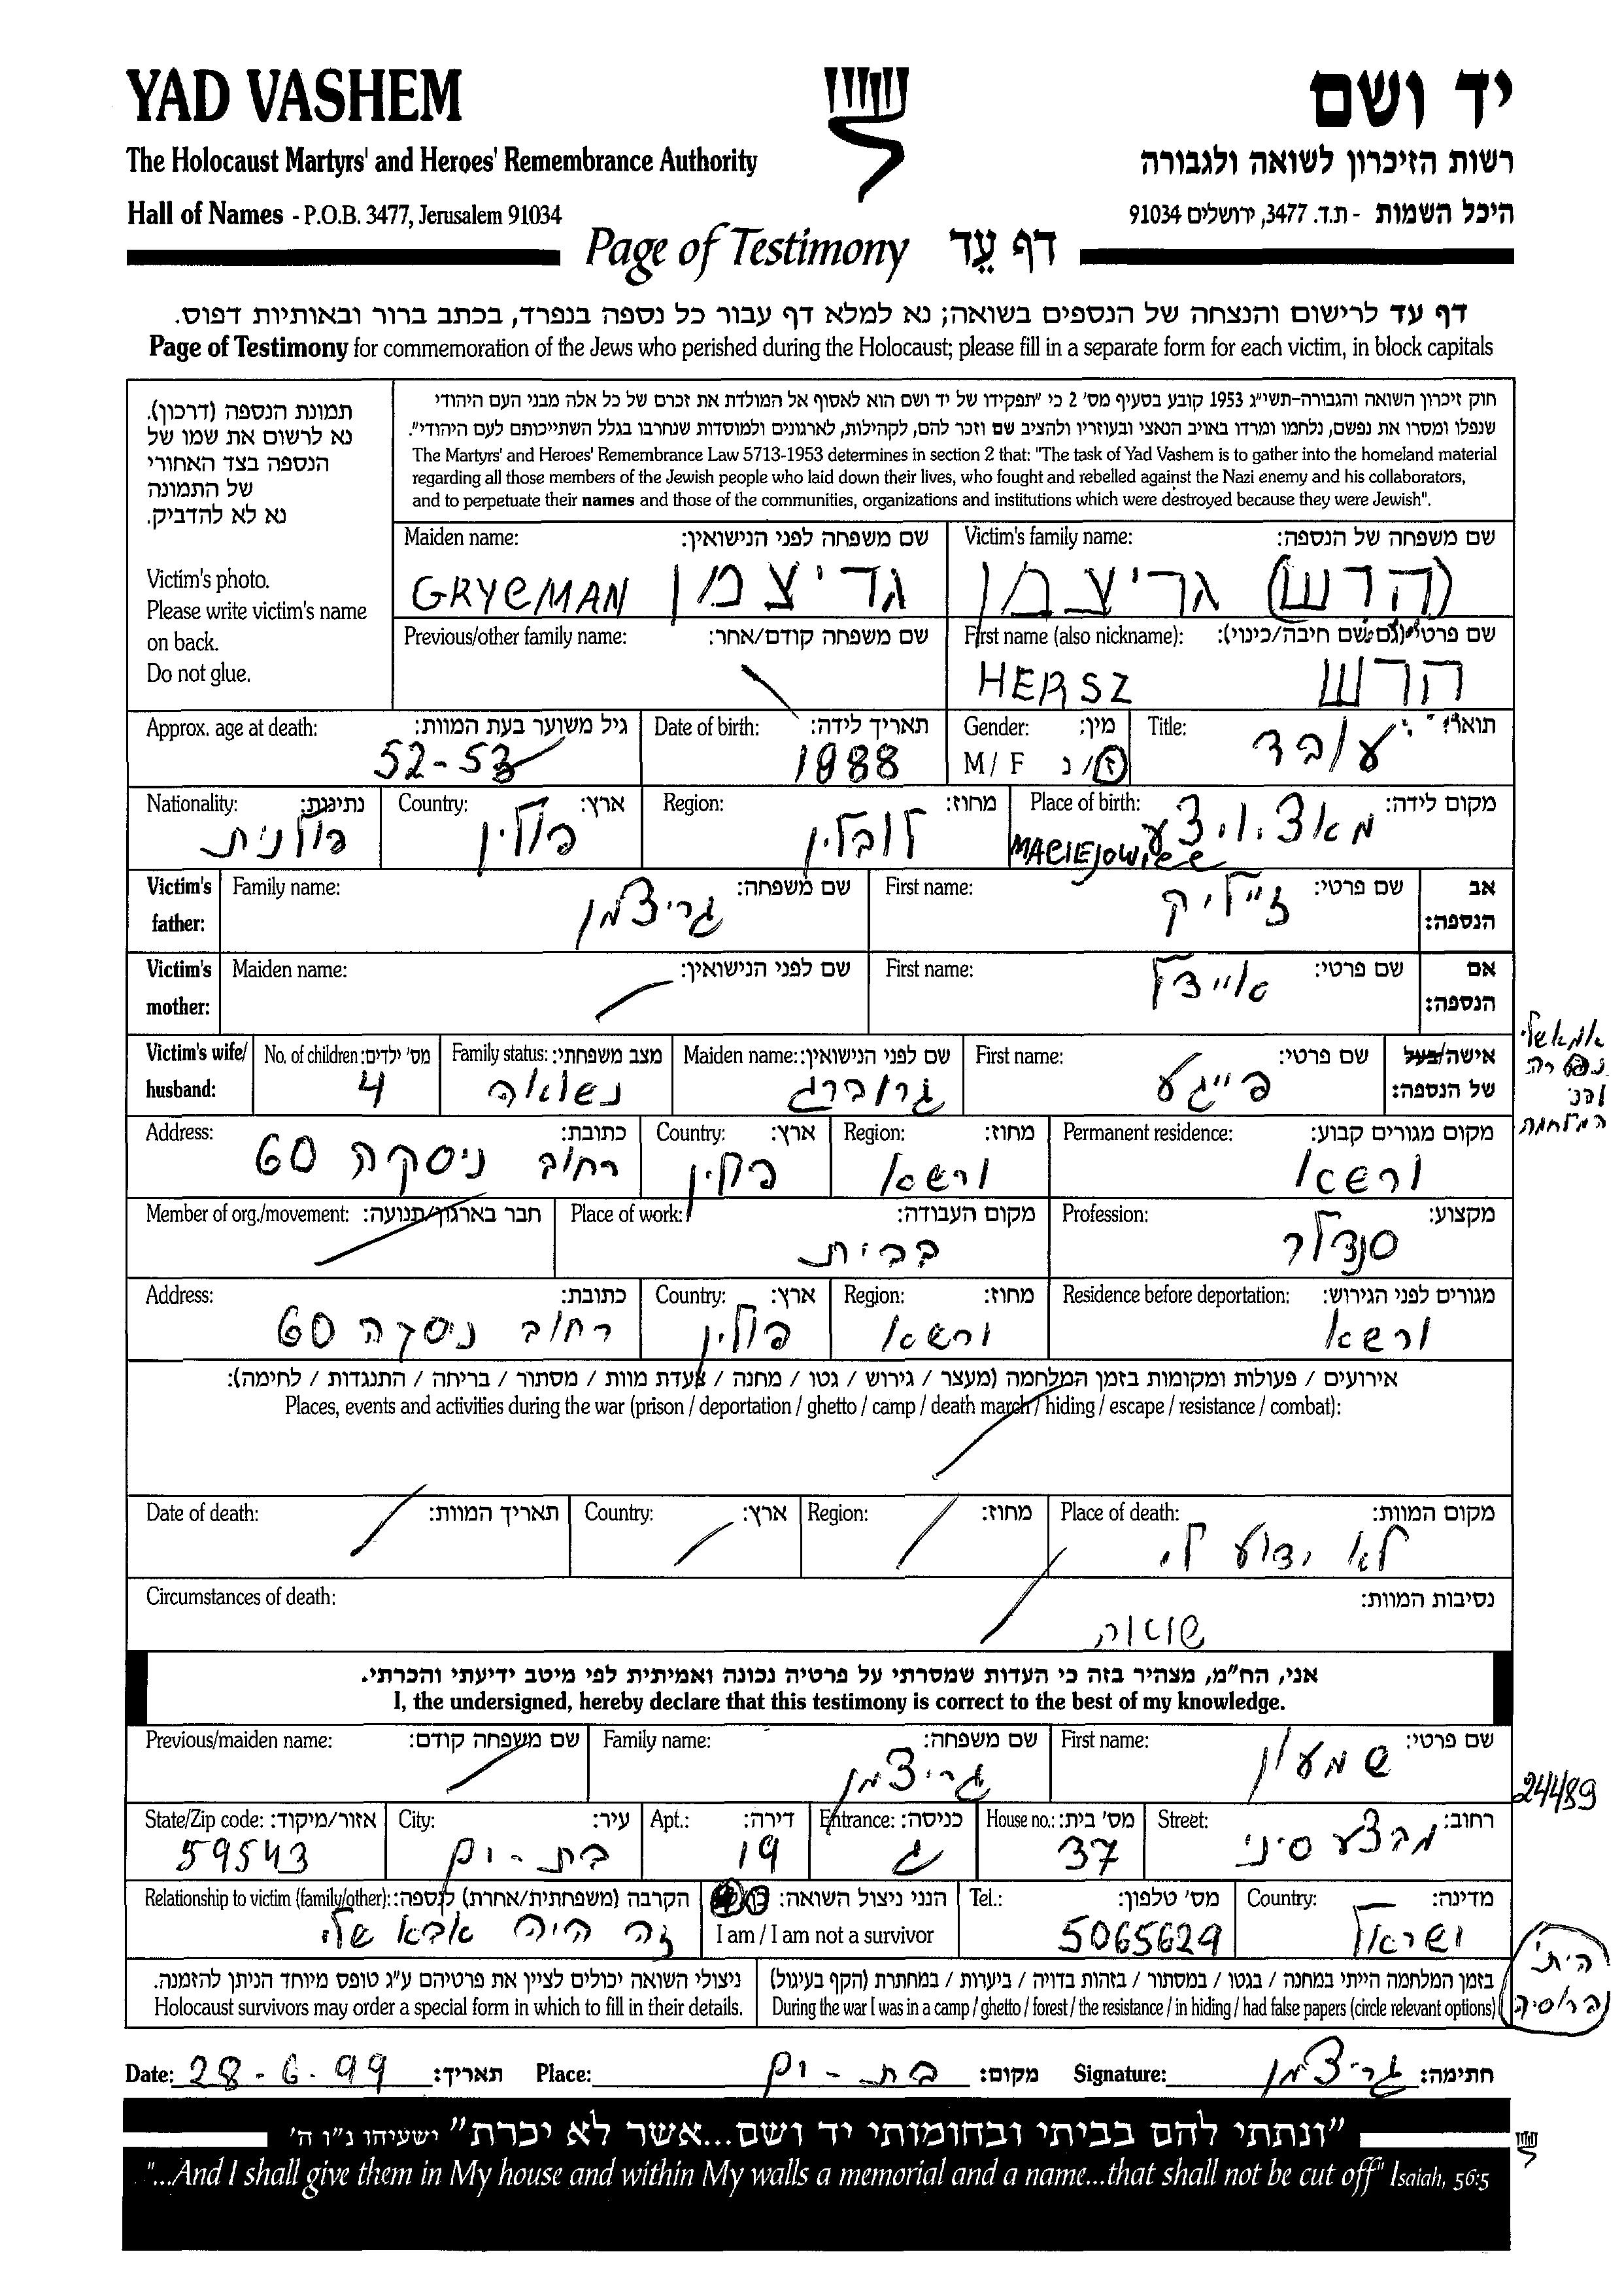 YAD VASHEM
יד ושם
The Holocaust Martyrs' and Heroes' Remembrance Authority
רשות הזיכרון לשואה ולגבורה
Hall of Names - P.O.B. 3477, Jerusalem 91034
היכל השמות - ת.ד. 3477, ירושלים 91034
Page of Testimony דף עֵד
דף עד לרישום והנצחה של הנספים בשואה; נא למלא דף עבור כל נספה בנפרד, בכתב ברור ובאותיות דפוס.
Page of Testimony for commemoration of the Jews who perished during the Holocaust; please fill in a separate form for each victim, in block capitals
תמונת הנספה (דרכון).
נא לרשום את שמו של
הנספה בצד האחורי
של התמונה
נא לא להדביק.
Victim's photo.
Please write victim's name
on back.
Do not glue.
חוק זיכרון השואה והגבורה-תשי"ג 1953 קובע בסעיף מס' 2 כי "תפקידו של יד ושם הוא לאסוף אל המולדת את זכרם של כל אלה מבני העם היהודי
שנפלו ומסרו את נפשם, נלחמו ומרדו באויב הנאצי ובעוזריו ולהציב שם וזכר להם, לקהילות, לארגונים ולמוסדות שנחרבו בגלל השתייכותם לעם היהודי".
The Martyrs' and Heroes' Remembrance Law 5713-1953 determines in section 2 that: "The task of Yad Vashem is to gather into the homeland material
regarding all those members of the Jewish people who laid down their lives, who fought and rebelled against the Nazi enemy and his collaborators,
and to perpetuate their names and those of the communities, organizations and institutions which were destroyed because they were Jewish".
Victim's family name: שם משפחה של הנספה:
(הרש) גריצמן
Maiden name: שם משפחה לפני הנישואין:
GRYCMAN גריצמן
First name (also nickname): שם פרטי (גם שם חיבה/כינוי):
HERSZ הרש
Previous/other family name: שם משפחה קודם/אחר:
Title: תואר:
עובד
Gender: מין:
M / F ז/נ
Date of birth: תאריך לידה:
1988
Approx. age at death: גיל משוער בעת המוות:
52-53
Place of birth: מקום לידה:
MACIEJOWICE
Region: מחוז:
לובלין
Country: ארץ:
פולין
Nationality: נתינות:
פולנית
Victim's father: אב הנספה:
First name: שם פרטי:
זייליק
Family name: שם משפחה:
גריצמן
Victim's mother: אם הנספה:
First name: שם פרטי:
איידל
Maiden name: שם לפני הנישואין:
Victim's wife/ husband: אישה/בעל של הנספה:
First name: שם פרטי:
פייגע
Maiden name: שם לפני הנישואין:
גרוברג
Family status: מצב משפחתי:
נשואה
No. of children: מס' ילדים:
4
אמא שלי
נפטרה
לפני
המלחמה
Permanent residence: מקום מגורים קבוע:
ורשא
Region: מחוז:
ורשא
Country: ארץ:
פולין
Address: כתובת:
רחוב ניסקה 60
Profession: מקצוע:
סנדלר
Place of work: מקום העבודה:
בבית
Member of org./movement: חבר בארגון/תנועה:
Residence before deportation: מגורים לפני הגירוש:
ורשא
Region: מחוז:
ורשא
Country: ארץ:
פולין
Address: כתובת:
רחוב ניסקה 60
אירועים / פעולות ומקומות בזמן המלחמה (מעצר / גירוש / גטו / מחנה / צעדת מוות / מסתור / בריחה / התנגדות / לחימה):
Places, events and activities during the war (prison / deportation / ghetto / camp / death march / hiding / escape / resistance / combat):
Place of death: מקום המוות:
לא ידוע לי
Region: מחוז:
Country: ארץ:
Date of death: תאריך המוות:
Circumstances of death: נסיבות המוות:
שואה
אני, הח"מ, מצהיר בזה כי העדות שמסרתי על פרטיה נכונה ואמיתית לפי מיטב ידיעתי והכרתי.
I, the undersigned, hereby declare that this testimony is correct to the best of my knowledge.
First name: שם פרטי:
שמעון
Family name: שם משפחה:
גריצמן
Previous/maiden name: שם משפחה קודם:
24489
Street: רחוב:
מבצע סיני
House no.: מס' בית:
37
Entrance: כניסה:
ג
Apt.: דירה:
19
City: עיר:
בת-ים
State/Zip code: אזור/מיקוד:
59543
Country: מדינה:
ישראל
Tel.: מס' טלפון:
5065629
הנני ניצול השואה:
I am / I am not a survivor
Relationship to victim (family/other): הקרבה (משפחתית/אחרת) לנספה:
זה היה אבא שלי
בזמן המלחמה הייתי במחנה / בגטו / במסתור / בזהות בדויה / ביערות / במחתרת (הקף בעיגול)
During the war I was in a camp / ghetto / forest / the resistance / in hiding / had false papers (circle relevant options)
ניצולי השואה יכולים לציין את פרטיהם ע"ג טופס מיוחד הניתן להזמנה.
Holocaust survivors may order a special form in which to fill in their details.
הייתי
ברוסיה
Date: 28-6-99 תאריך: Place: בת-ים מקום: Signature: גריצמן חתימה:
"ונתתי להם בביתי ובחומותי יד ושם...אשר לא יכרת" ישעיהו נ"ו ה'
"...And I shall give them in My house and within My walls a memorial and a name...that shall not be cut off" Isaiah, 56:5